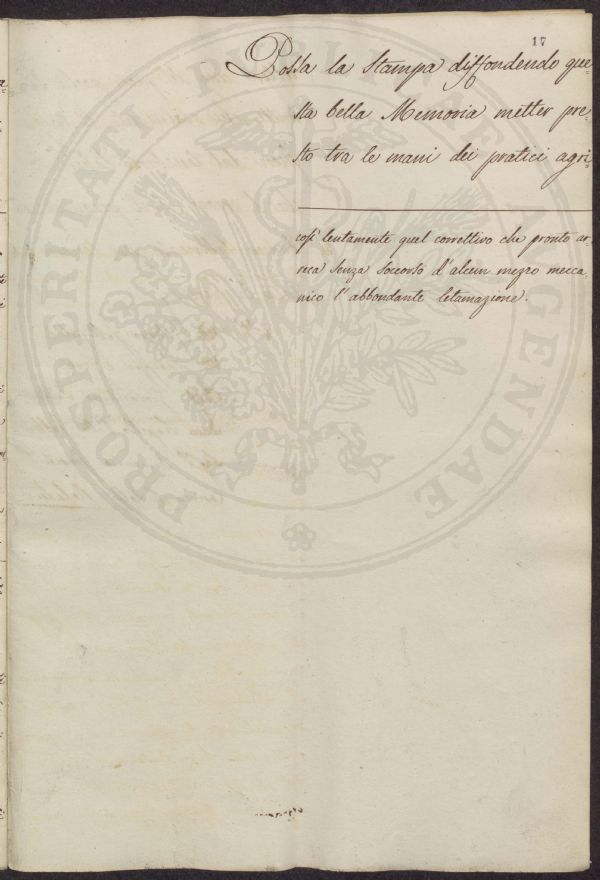 17
Possa la Stampa diffondendo que-
sta bella Memoria metter pre-
sto tra le mani dei pratici agri-
così lentamente quel correttivo che pronto ar-
reca senza soccorso d'alcun mezzo mecca-
nico l'abbondante letamazione.
PROSPERITATI PUBLICAE AUGENDAE